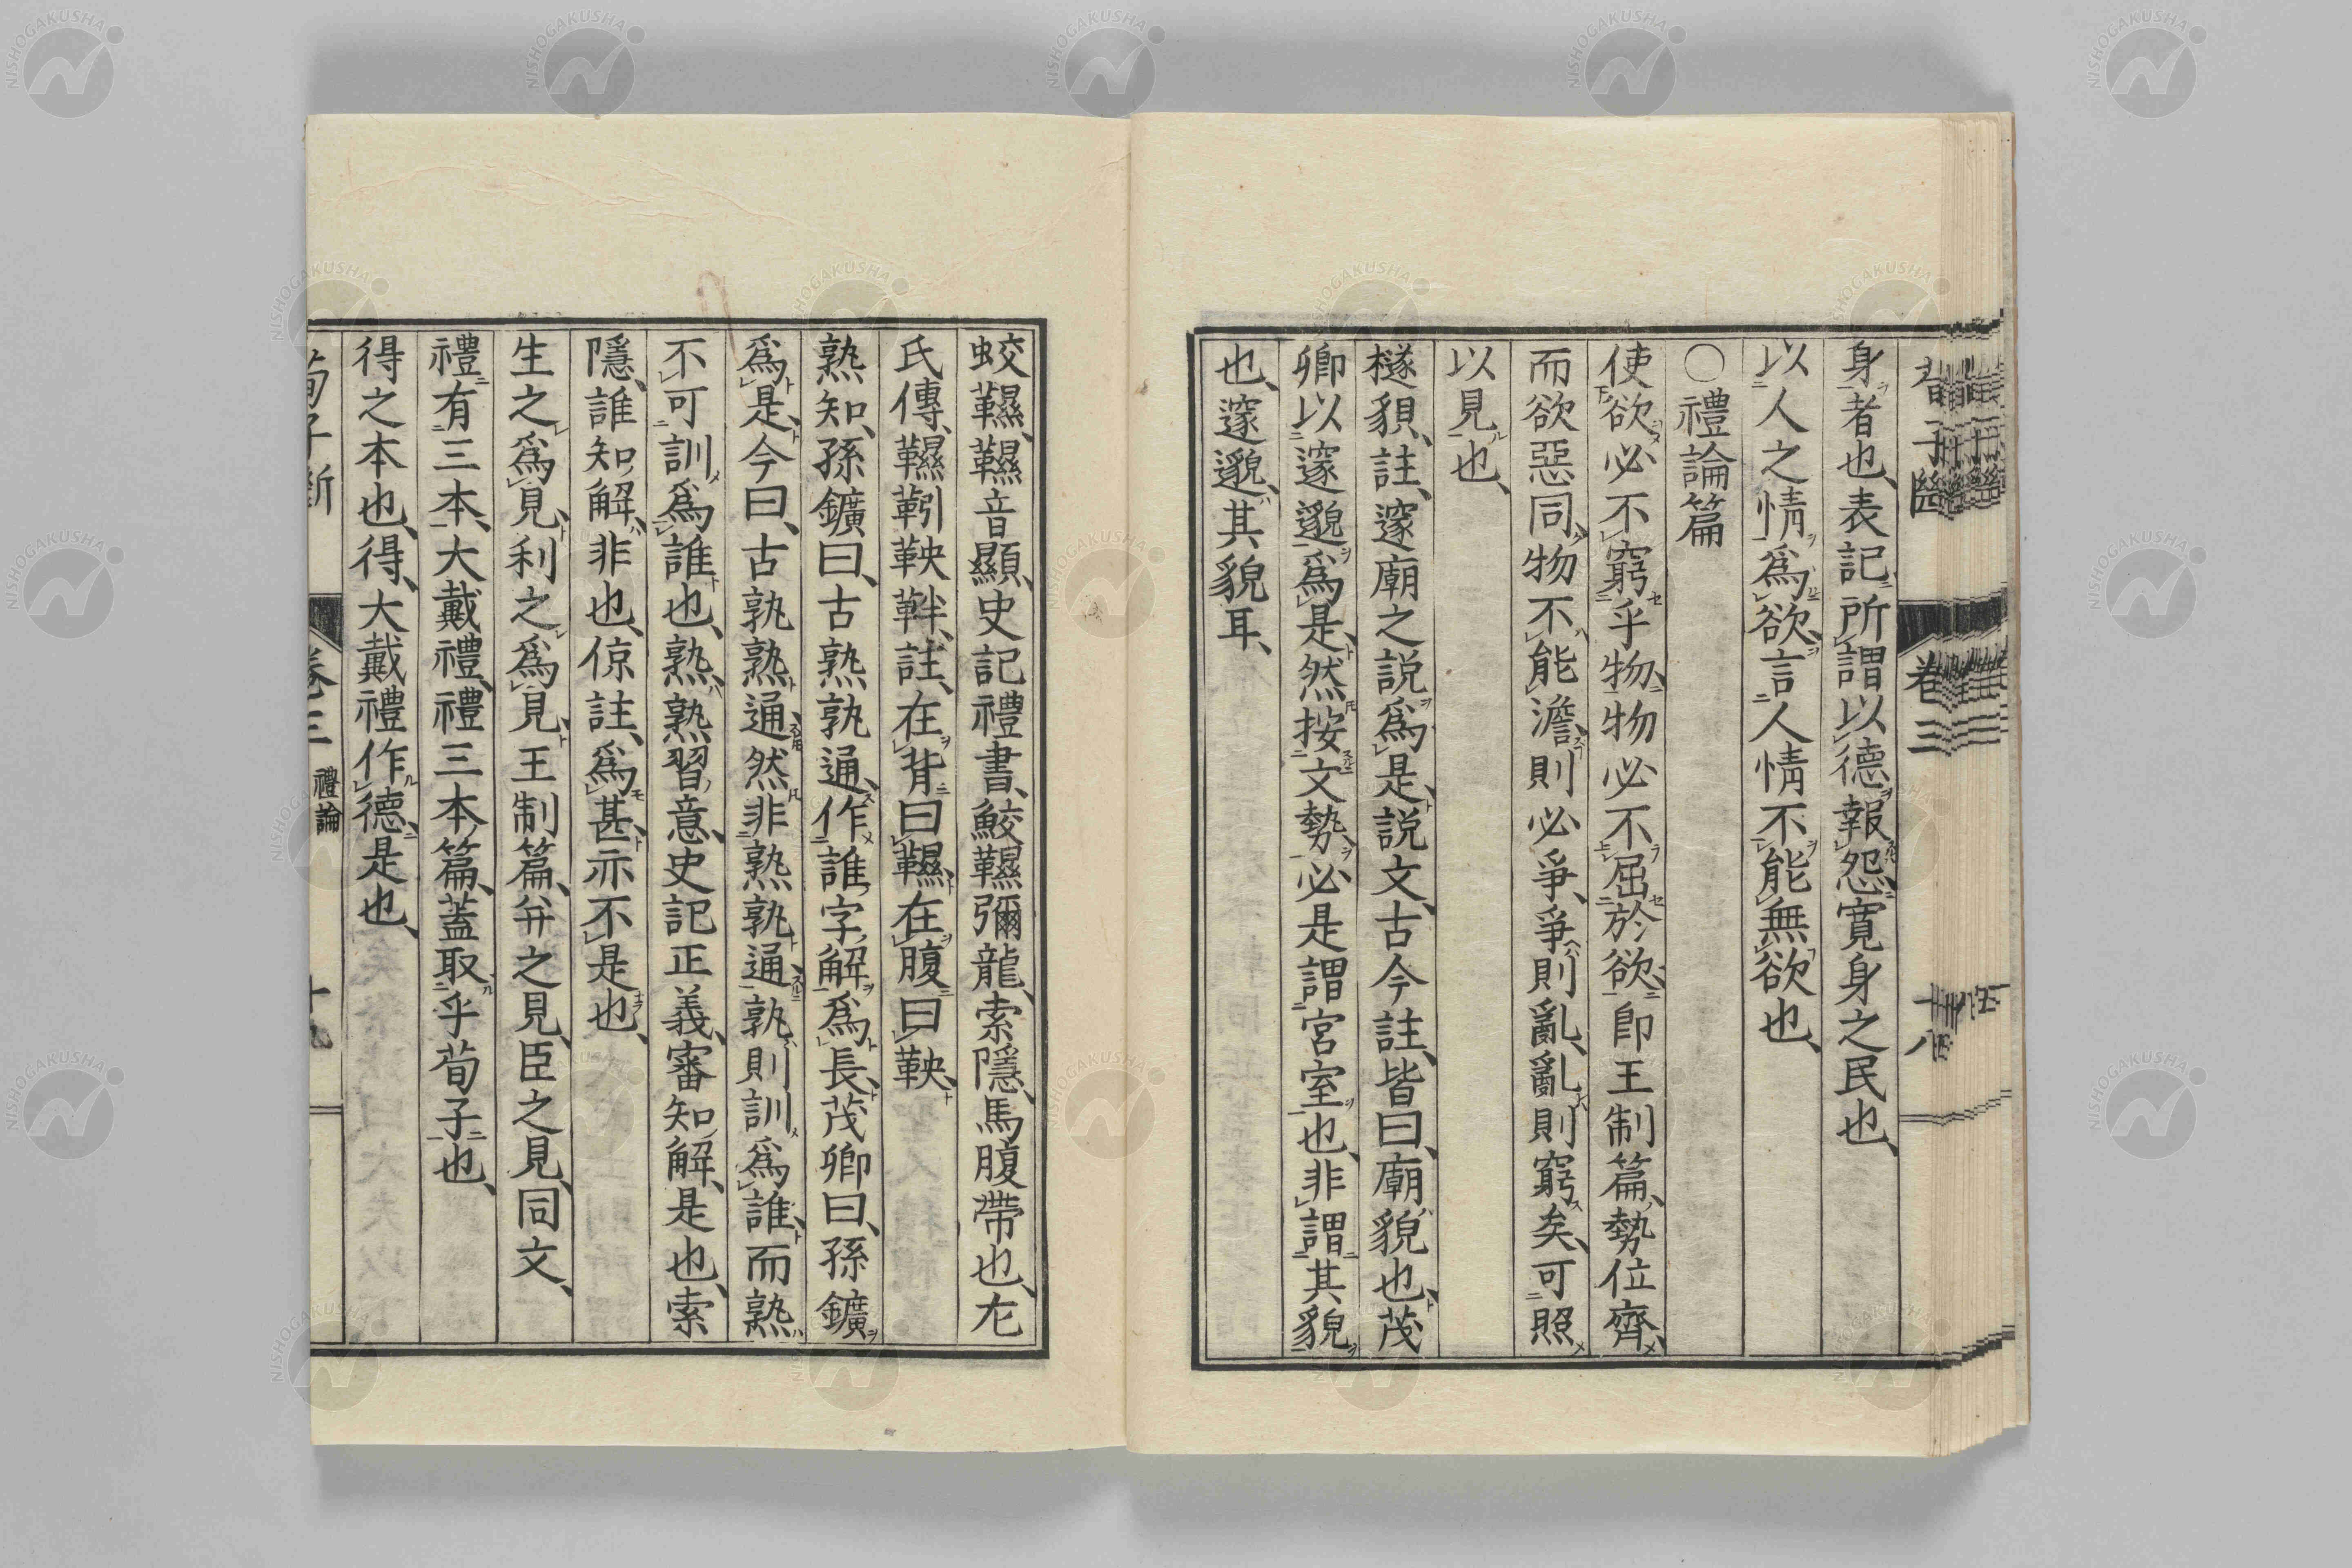 身者也、表記所謂以德報怨、寬身之民也、
以人之情爲欲、言人情不能無欲也、
〇禮論篇
使欲必不窮乎物、物必不屈於欲、卽王制篇、勢位齊、
而欲惡同、物不能澹、則必爭、爭則亂、亂則窮矣、可照
以見也、
檖貌、註、邃廟之說爲是、說文、古今註、皆曰、廟貌也、茂
卿以邃邈爲是、然按文勢、必是謂宮室也、非謂其貌
也、邃邈、其貌耳、
卷三
蛟韅、韅音顯、史記禮書、鮫韅彌龍、索隱、馬腹帶也、左
氏傳、韅靷鞅靽、註、在背曰韅、在腹曰鞅、
熟知、孫鑛曰、古熟孰通、作誰字解爲長、茂卿曰、孫鑛
爲是、今曰、古孰熟通、然非熟孰通、孰則訓爲誰、而熟
不可訓爲誰也、熟、熟習意、史記正義、審知解、是也、索
隱、誰知解、非也、倞註、爲甚亦不是也、
生之爲見、利之爲見、王制篇、弁之見、臣之見、同文、
禮有三本、大戴禮、禮三本篇、蓋取乎荀子也、
得之本也、得、大戴禮作德、是也、
荀子斷
卷三 禮論
十九
NISHOGAKUSHA